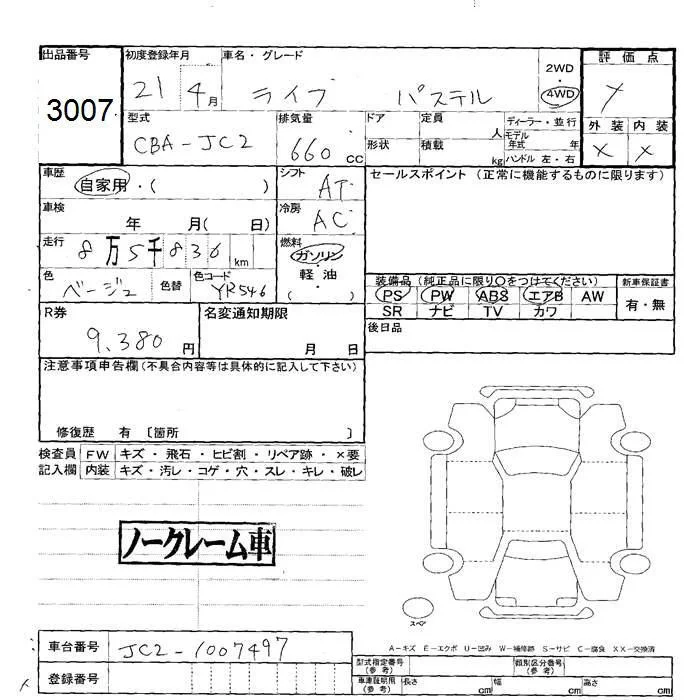 出品番号 初度登録年月 車名・グレード 2WD・4WD 評価点
3007 21 4月 ライフ パステル
型式 排気量 ドア 定員 人 ディーラー・並行 外装 内装
CBA-JC2 660cc 形状 積載 kg モデル年式 年 ハンドル 左・右 × ×
車歴 自家用・( ) シフト AT セールスポイント (正常に機能するものに限ります)
車検 年 月( 日) 冷房 AC
走行 8万5千836km 燃料 ガソリン・軽油・( )
色 ベージュ 色替 色コード YR546
装備品 (純正品に限り○をつけてください) 新車保証書
PS PW ABS エアB AW 有・無
SR ナビ TV カワ
R券 9,380円 名変通知期限 月 日 後日品
注意事項申告欄(不具合内容等は具体的に記入して下さい)
修復歴 有 〔箇所 〕
検査員 FW キズ・飛石・ヒビ割・リペア跡・×要
記入欄 内装 キズ・汚し・コゲ・穴・スレ・キレ・破レ
ノークレーム車
スペア
A-キズ E-エクボ U-凹み W-補修跡 S-サビ C-腐食 XX-交換済
車台番号 JC2-1007497
登録番号
型式指定番号(参考) 類別区分番号(参考)
車庫証明用(参考) 長さ cm 幅 cm 高さ cm